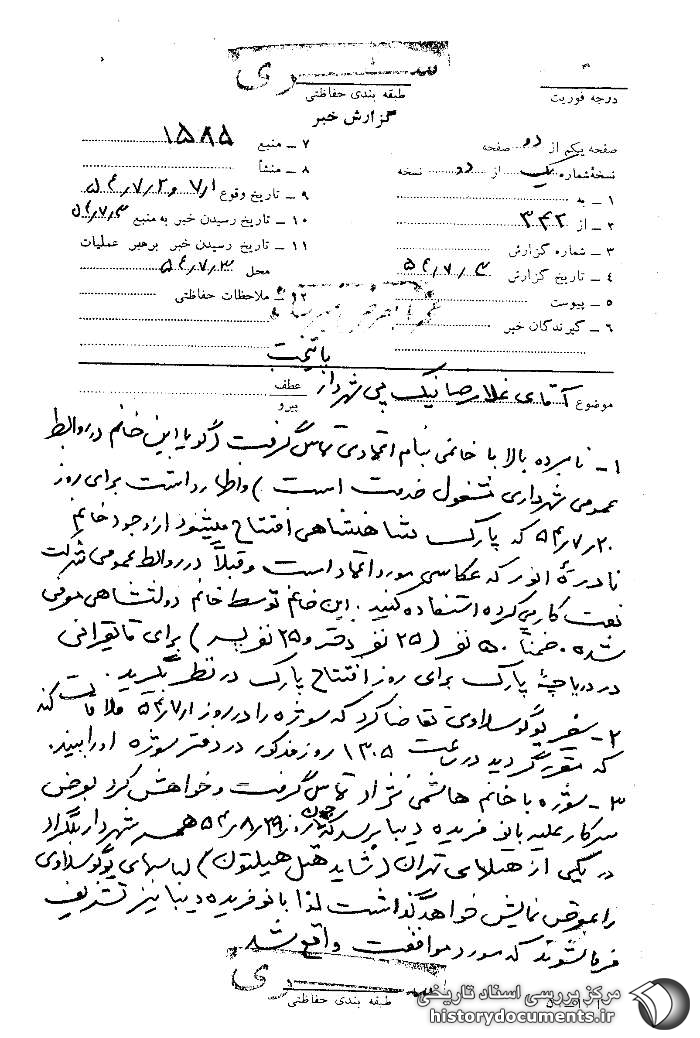 سری
طبقه بندی حفاظتی
درجه فوریت
گزارش خبر
صفحه یکم از دو صفحه
نسخهٔ شماره یک از دو نسخه
۱ – به
۲ – از ۳۴۲
۳ – شماره گزارش
۴ – تاریخ گزارش ۵۴٫۷٫۳
۵ – پیوست
۶ – گیرندگان خبر
۷ – منبع ۱۵۸۵
۸ – منشأ
۹ – تاریخ وقوع ۱٫۷ و ۵۴٫۷٫۲
۱۰ – تاریخ رسیدن خبر به منبع ۵۴٫۷٫۳
۱۱ – تاریخ رسیدن خبر برهبر عملیات
محل ۵۴٫۷٫۳
۱۲ – ملاحظات حفاظتی
پایتخت
موضوع آقای غلامرضا نیک پی شهردار
عطف
پیرو
۱- نامبرده بالا با خانمی بنام اعتمادی تماس گرفت (گویا این خانم در روابط
عمومی شهرداری مشغول خدمت است) و اظهار داشت برای روز
۵۴٫۷٫۲۰ که پارک شاهنشاهی افتتاح میشود از وجود خانم
نادرهٔ انور که عکاسی مورد اعتماد است و قبلاً در روابط عمومی شرکت
نفت کار می کرده استفاده کنید. این خانم توسط خانم دولتشاهی معرفی
شده. ضمناً ۵۰ نفر (۲۵ نفر دختر و ۲۵ نفر پسر) برای قایقرانی
در دریاچهٔ پارک برای روز افتتاح پارک در نظر بگیرید.
۲- سفیر یوگوسلاوی تقاضا کرد که سوژه را در روز ۵۴٫۷٫۱ ملاقات کند
که مقرر گردید در ساعت ۱۳۰۵ روز مذکور در دفتر سوژه او را ببیند.
۳- سوژه با خانم هاشمی نژاد تماس گرفت و خواهش کرد بعرض
سرکار علیه بانو فریده دیبا برسد که چون روز ۵۴٫۸٫۲۹ همسر شهردار بلگراد
در یکی از هتلهای تهران (شاید هتل هیلتون) لباسهای یوگوسلاوی
را بمعرض نمایش خواهد گذاشت لذا بانو فریده دیبا نیز تشریف
فرما شوند که مورد موافقت واقع شد
سری
طبقه بندی حفاظتی
مرکز بررسی اسناد تاریخی
historydocuments.ir